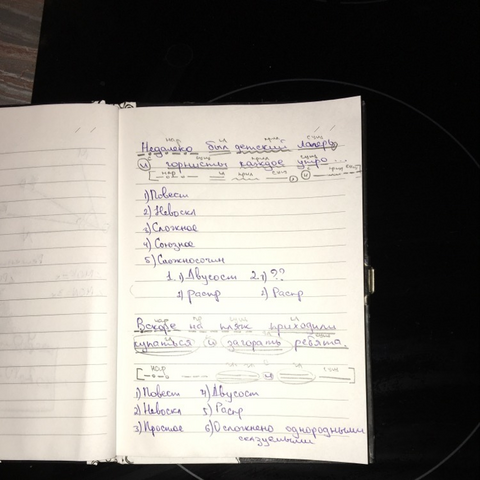 нар гл прил сущ
Недалеко был детский лагерь,
и горнисты каждое утро ...
1) Повест
2) Невоскл
3) Сложное
4) Союзное
5) Сложносочин
1. 1) Двусост 2. 1) ??
2) распр 2) Распр
нар пр сущ гл
Вскоре на пляж приходили
купаться и загорать ребята.
нар и сущ
1) Повест 4) Двусост
2) Невоскл 5) Распр
3) Простое 6) Осложнено однородными
сказуемыми